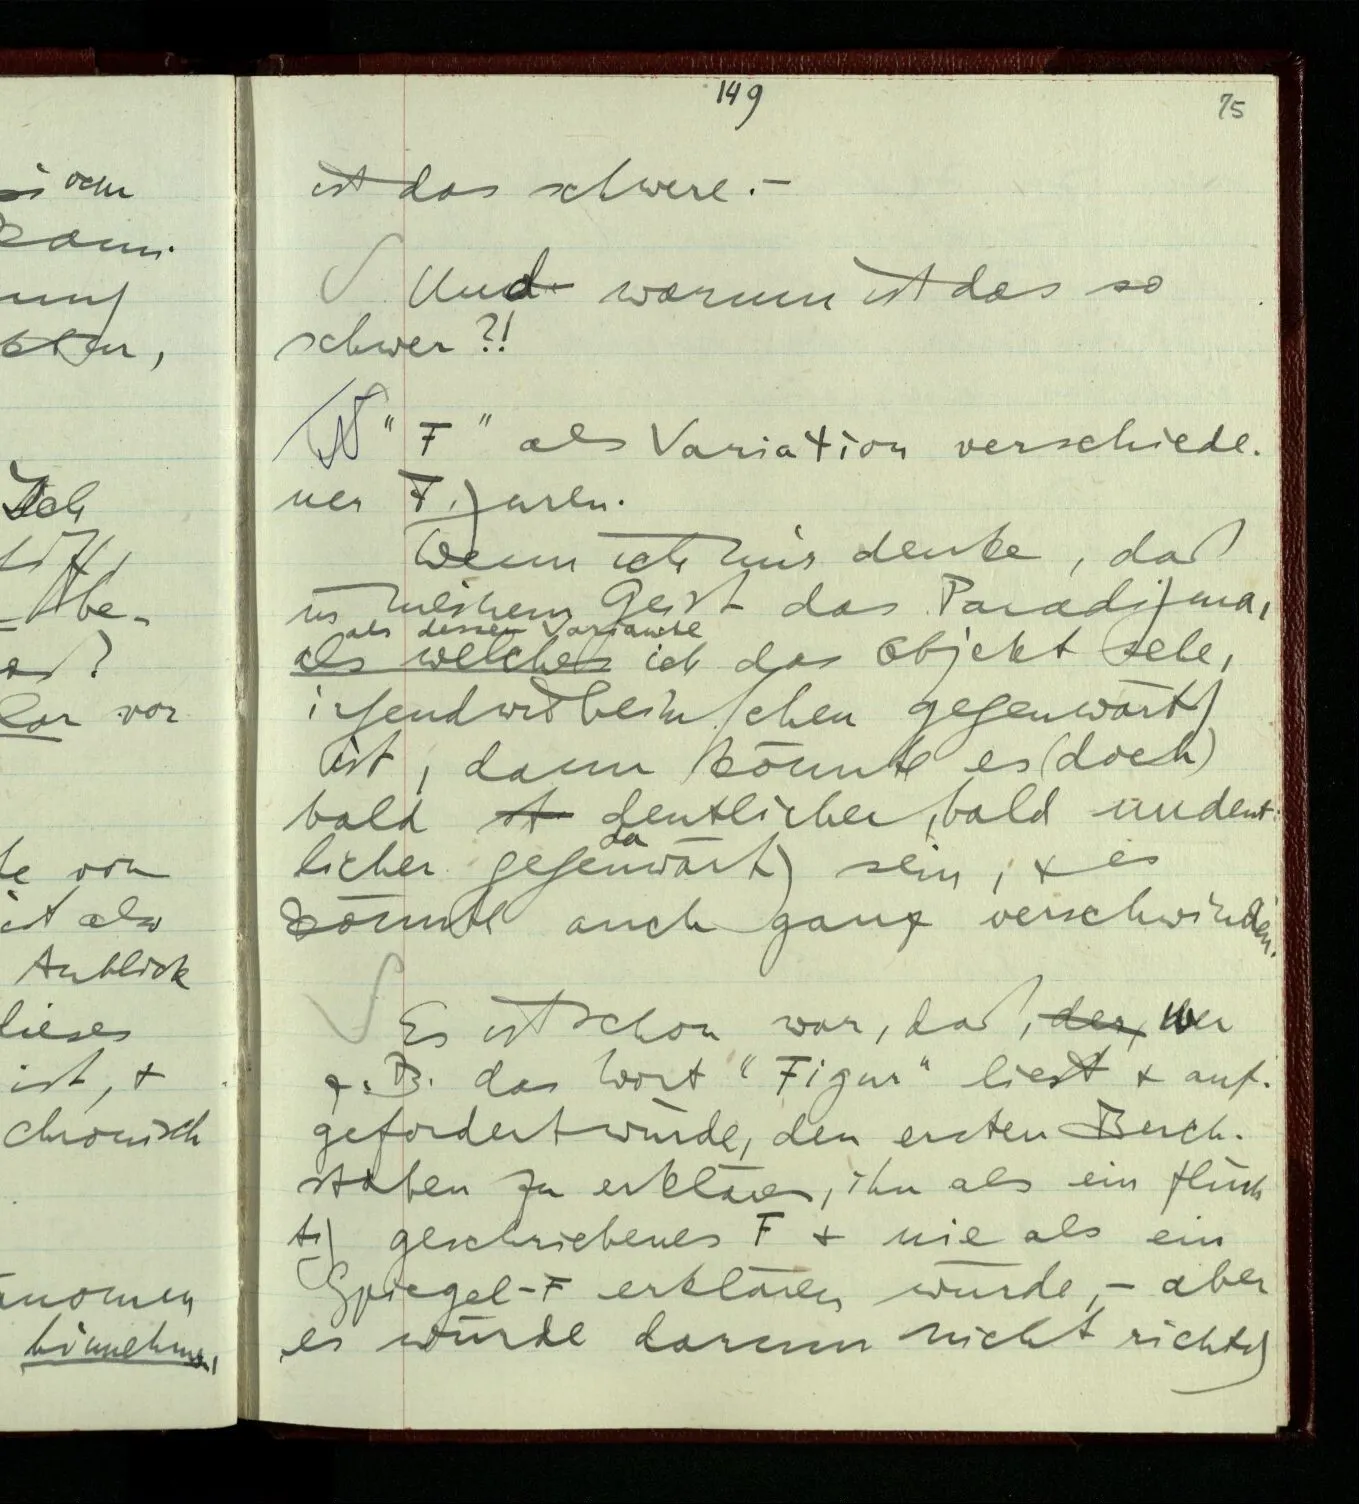 149
75
ist das schwere. –
Und warum ist das so
schwer?!
"F" als Variation verschiede-
ner Figuren.
Wenn ich mir denke, daß
in meinem Geist das Paradigma,
als dessen Variante
als welches ich das Objekt sehe,
irgendwie beim Sehen gegenwärtig
ist, dann könnte es (doch)
bald deutlicher, bald undeut-
da
licher gegenwärtig sein, & es
könnte auch ganz verschwinden.
Es ist schon war, daß, der, wer
z.B. das Wort "Figur" liest & auf-
gefordert würde, den ersten Buch-
staben zu erklären, ihn als ein flüch
tig geschriebenes F & nie als ein
Spiegel-F erklären würde, – aber
es würde darum nicht richtig
oder
Ich
vor
von
ist also
Anblick
dieses
ist, &
chronisch
hinnehmen,